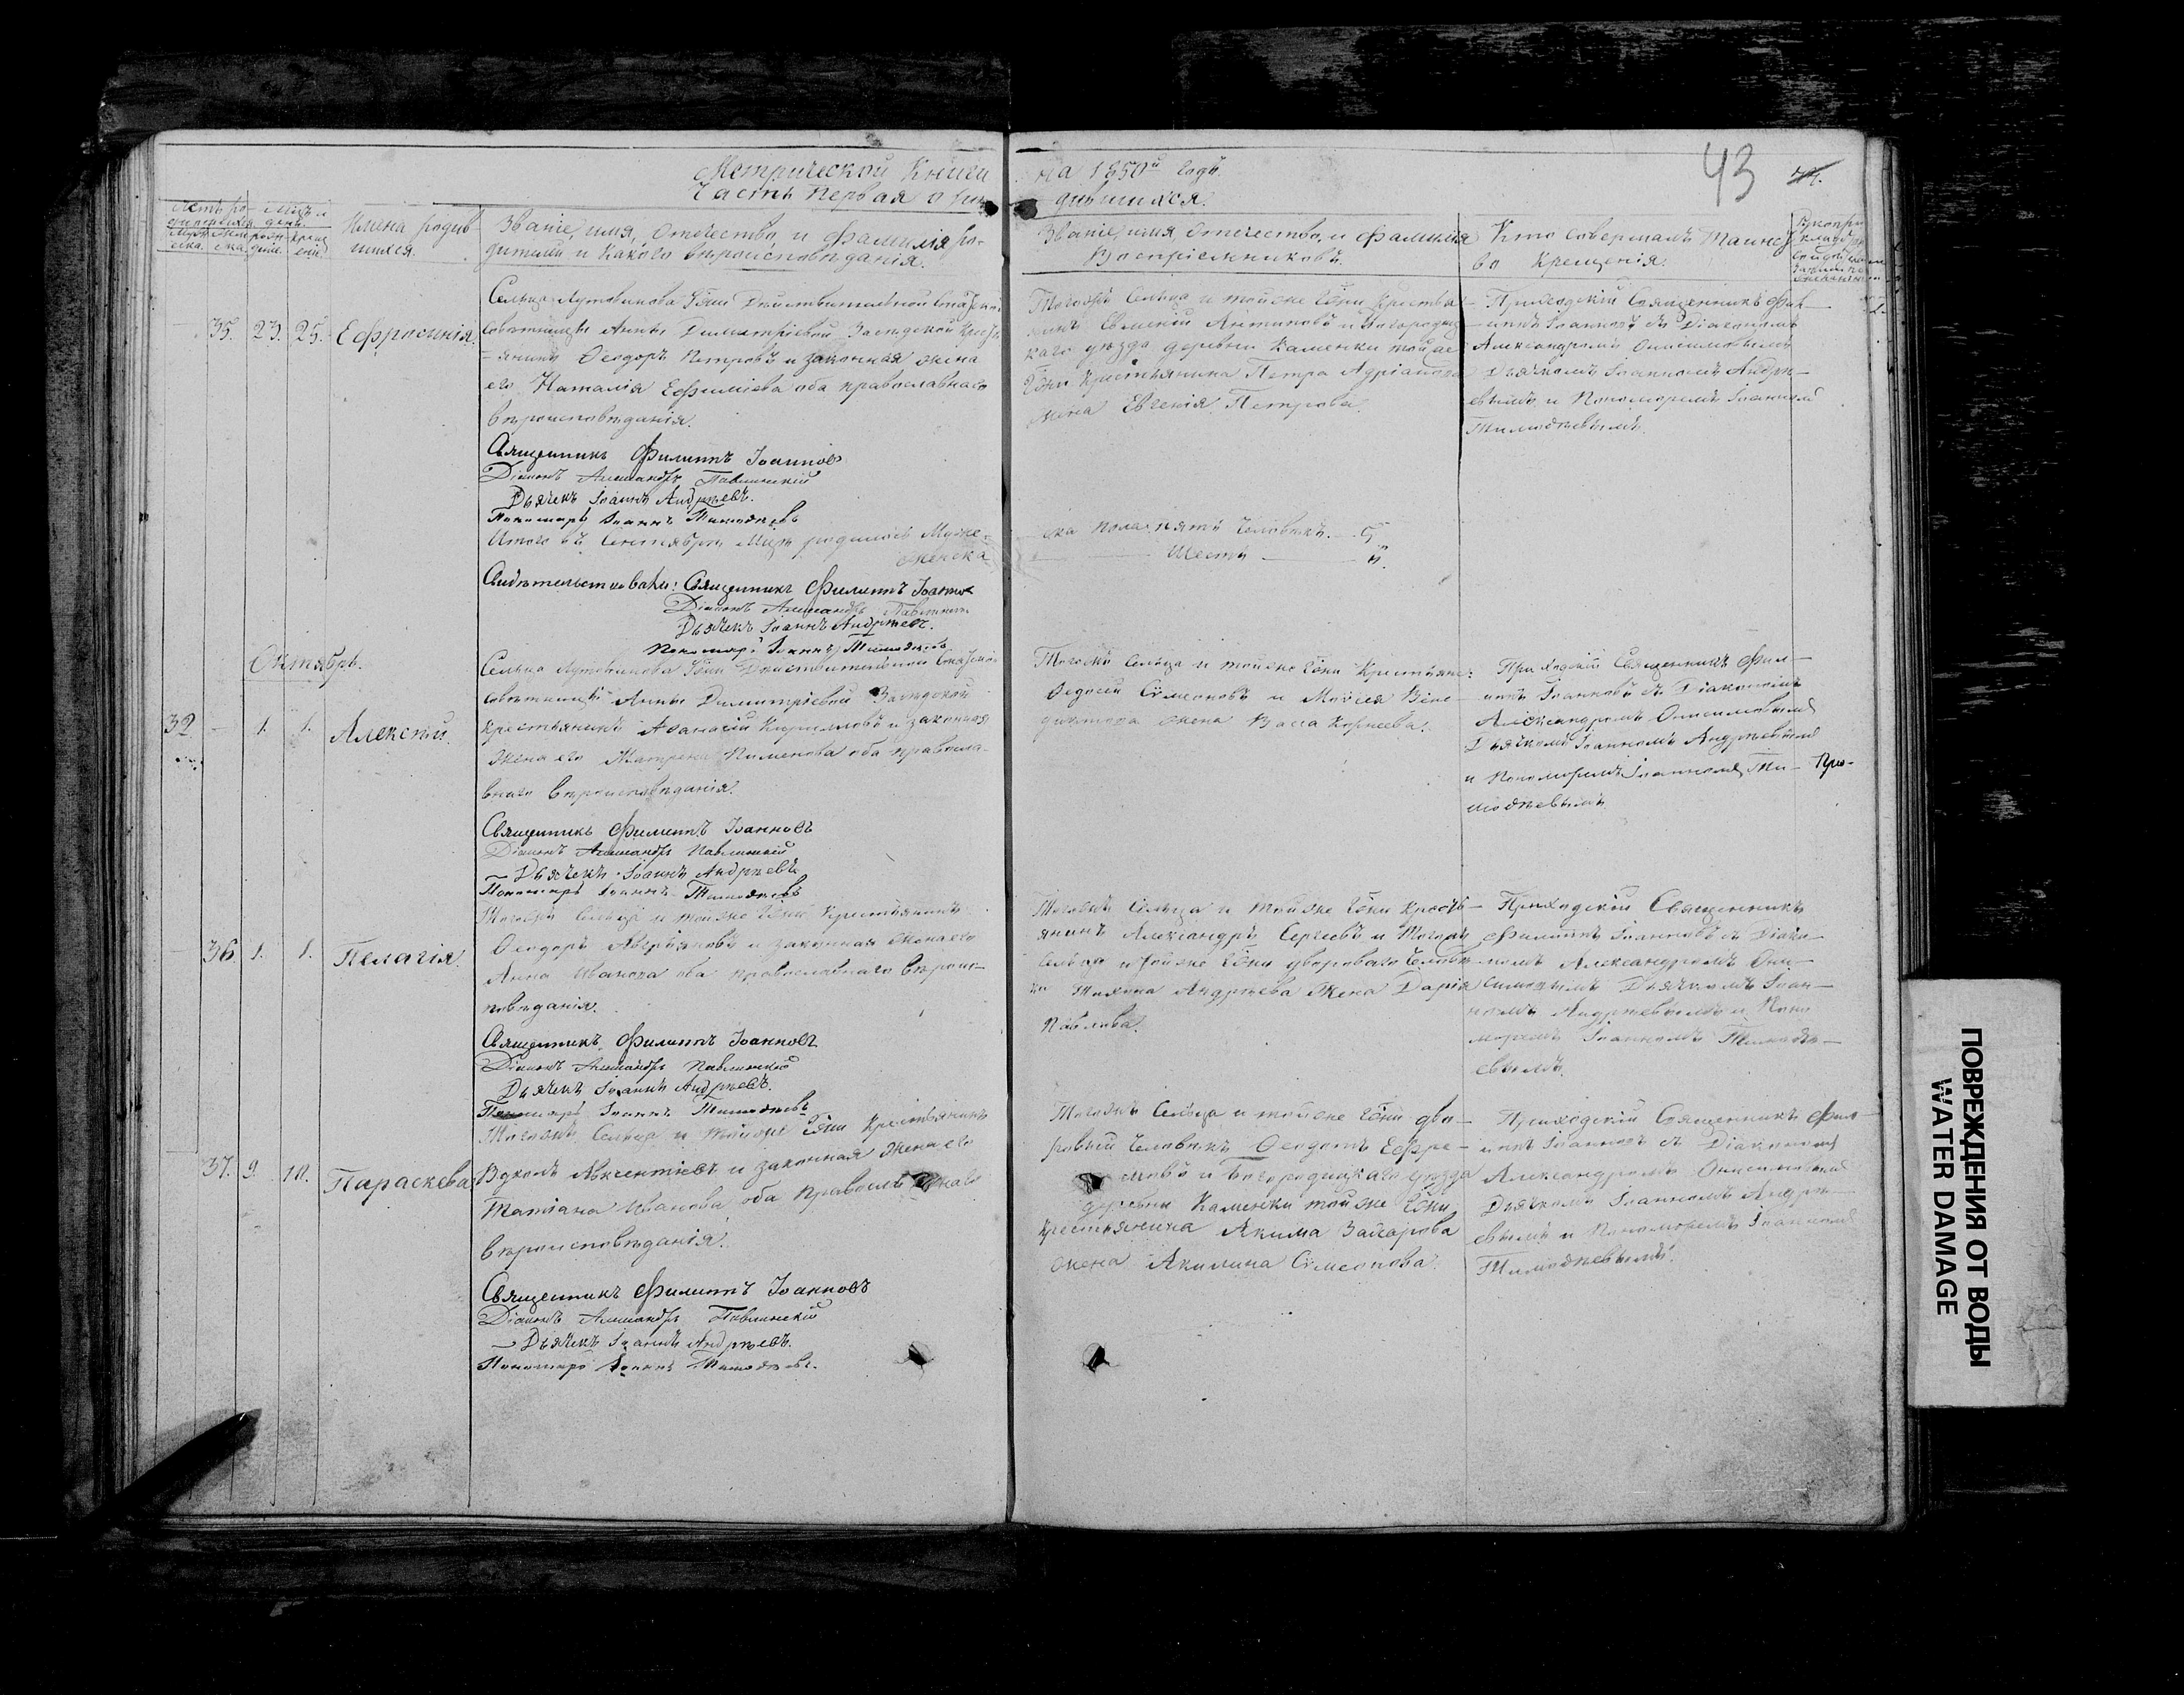 Метрической Книги на 1850й годъ.
Часть первая о ро дившихся.
43
Имена родив-
шихся.
Званіе, имя, отечество, и фамилія ро-
дителей и какого вѣроисповѣданія.
Званіе, имя отечество, и фамилія
Воспріемниковъ.
Кто совершалъ Таинс
во крещенія.
35. 23. 25. Ефросинія.
Сельца Лутовинова Гжи Дѣйствительной Статской
Совѣтницы Анны Димитріевой крестъ
янинъ Ѳеодоръ Петровъ и законная жена
его Наталія Ефиміева оба православнаго
вѣроисповѣданія.
Священникъ Филиппъ Іоанновъ
Діаконъ Александръ Павлинскій
Дьячекъ Іоаннъ Андреевъ.
Пономарь Іоаннъ Тимоѳеевъ
Тогожъ Сельца и тойже Гжи крестья
нинъ Евменій Антиповъ и Богородиц
каго уѣзда деревни Каменки той же
Гжи крестьянина Петра Адріанова
жена Евгенія Петрова.
Приходскій Священникъ Фил-
иппъ Іоанновъ съ Діакономъ
Александромъ Онисимовымъ
Дьячкомъ Іоанномъ Андре-
евымъ и Пономаремъ Іоанномъ
Тимоѳеевымъ.
Итого въ Сентябрѣ Мцѣ родилось Муже-
ска пола пять человѣкъ. 5
женска
Шесть
Свидѣтельствовали: Священникъ Филиппъ Іоаннов
Діаконъ Александръ Павлинскій
Дьячекъ Іоаннъ Андреевъ.
Пономарь Іоаннъ Тимоѳеевъ
Октябрь.
32 - 1. 1. Алексѣй.
Сельца Лутовинова Гжи Дѣйствительной Статской
Совѣтницы Анны Димитріевой
крестьянинъ Аѳанасій Кирилловъ и законная
жена его Матрена Пименова оба правосла-
внаго вѣроисповѣданія.
Священникъ Филиппъ Іоанновъ
Діаконъ Александръ Павлинскій
Дьячекъ Іоаннъ Андреевъ
Пономарь Іоаннъ Тимоѳеевъ
Тогожъ Сельца и тойже Гжи крестьяне:
Ѳедосей Симеоновъ и Моисея Вене-
диктова жена Васса Корнеева.
Приходскій Священникъ Фил-
иппъ Іоанновъ съ Діакономъ
Александромъ Онисимовымъ
Дьячкомъ Іоанномъ Андреевымъ
и Пономаремъ Іоанномъ Ти-
моѳеевымъ
- 36. 1. 1. Пелагія.
Тогожъ Сельца и тойже Гжи крестьянинъ
Ѳеодоръ Аверіяновъ и законная жена его
Анна Иванова оба православнаго вѣроис-
повѣданія.
Священникъ Филиппъ Іоанновъ
Діаконъ Александръ Павлинскій
Дьячекъ Іоаннъ Андреевъ.
Пономарь Іоаннъ Тимоѳеевъ
Тогожъ Сельца и тойже Гжи кресть-
янинъ Александръ Сергеевъ и Тогожъ
Сельца и тойже Гжи двороваго человѣ
ка Тихона Андреева жена Дарія
Павлова.
Приходскій Священникъ
Филиппъ Іоанновъ съ Діако-
номъ Александромъ Они-
симовымъ Дьячкомъ Іоан-
номъ Андреевымъ и Поно
маремъ Іоанномъ Тимоѳе-
евымъ.
37. 9. 10. Параскева
Тогожъ Сельца и тойже Гжи крестьянинъ
Вуколъ Авксентіевъ и законная жена его
Татіана Иванова оба православнаго
вѣроисповѣданія.
Священникъ Филиппъ Іоанновъ
Діаконъ Александръ Павлинскій
Дьячекъ Іоаннъ Андреевъ.
Пономарь Іоаннъ Тимоѳеевъ.
Тогожъ Сельца и тойже Гжи дво-
ровый человѣкъ Ѳеодотъ Ефре-
мовъ и Богородицкаго уѣзда
деревни Каменки тойже Гжи
крестьянина Акима Захарова
жена Акилина Симеонова.
Приходскій Священникъ Фил-
иппъ Іоанновъ съ Діакономъ
Александромъ Онисимовымъ
Дьячкомъ Іоанномъ Андре-
евымъ и Пономаремъ Іоанномъ
Тимоѳеевымъ.
ПОВРЕЖДЕНИЯ ОТ ВОДЫ
WATER DAMAGE